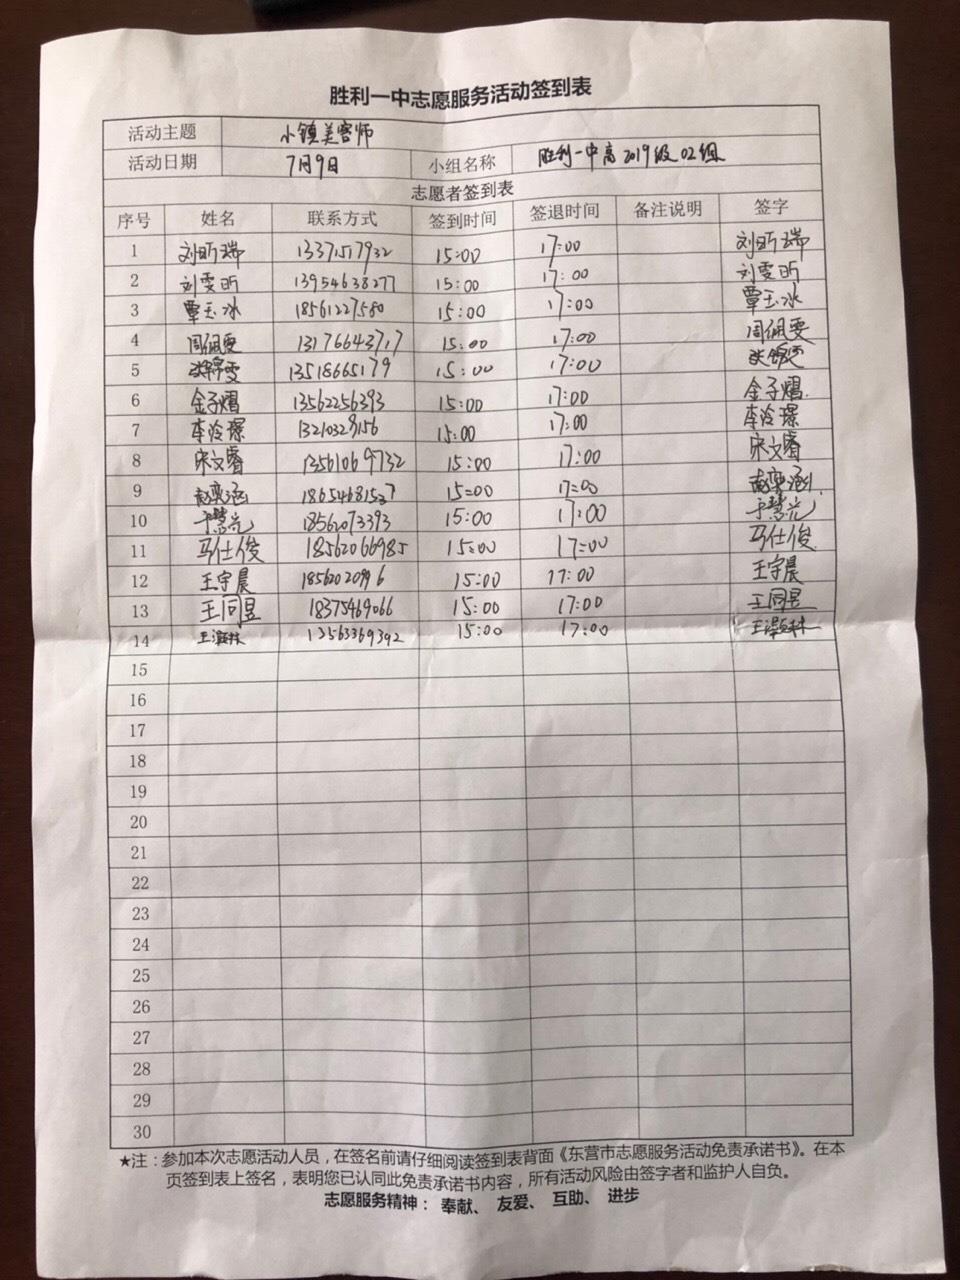 胜利一中志愿服务活动签到表
活动主题 小镇美容师
活动日期 7月9日 小组名称 胜利一中高2019级02组
志愿者签到表
序号 姓名 联系方式 签到时间 签退时间 备注说明 签字
1 刘昕瑞 13371517932 15:00 17:00 刘昕瑞
2 刘雯昕 13954638277 15:00 17:00 刘雯昕
3 覃玉冰 18561227580 15:00 17:00 覃玉冰
4 周佩雯 13176643717 15:00 17:00 周佩雯
5 13518665179 15:00 17:00
6 金子熠 13562256393 15:00 17:00 金子熠
7 李泠璟 13210329156 15:00 17:00 李泠璟
8 宋文睿 13561069732 15:00 17:00 宋文睿
9 赵奕涵 15=00 17=00 赵奕涵
10 于慧光 18562073393 15:00 17:00 于慧光
11 马仕俊 18562066985 15=00 17=00 马仕俊
12 王宇晨 15:00 17:00 王宇晨
13 王同昱 18375469066 15:00 17:00 王同昱
14 15:00 17:00
15
16
17
18
19
20
21
22
23
24
25
26
27
28
29
30
★注：参加本次志愿活动人员，在签名前请仔细阅读签到表背面《东营市志愿服务活动免责承诺书》。在本
页签到表上签名，表明您已认同此免责承诺书内容，所有活动风险由签字者和监护人自负。
志愿服务精神：奉献、友爱、互助、进步